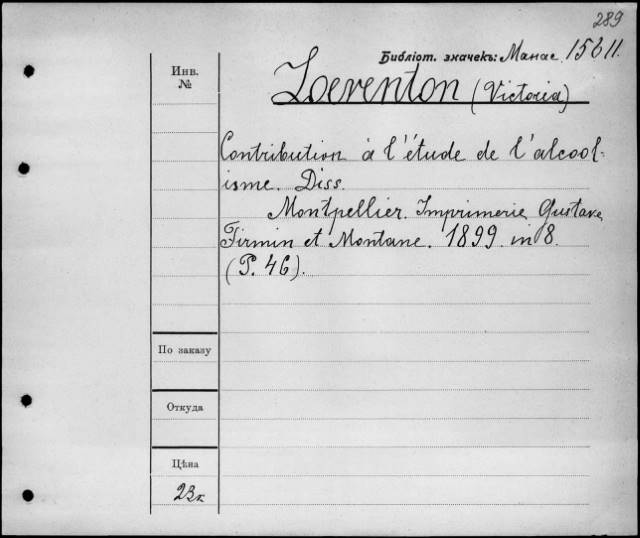 289
Библіот. значекъ: Манас. 15611.
Инв.
№
Loeventon (Victoria)
Contribution à l'étude de l'alcool-
isme. Diss.
Montpellier. Imprimerie Gustave
Firmin et Montane. 1899. in 8.
(P. 46).
По заказу
Откуда
Цѣна
23к